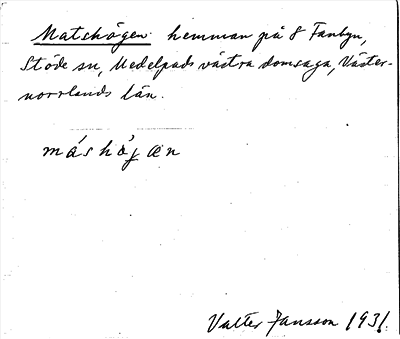 Matshögen hemman på 8 Fanbyn,
Stöde sn, Medelpads västra domsaga, Väster-
norrlands län.
máshǫ́gæn
Valter Jansson 1931.